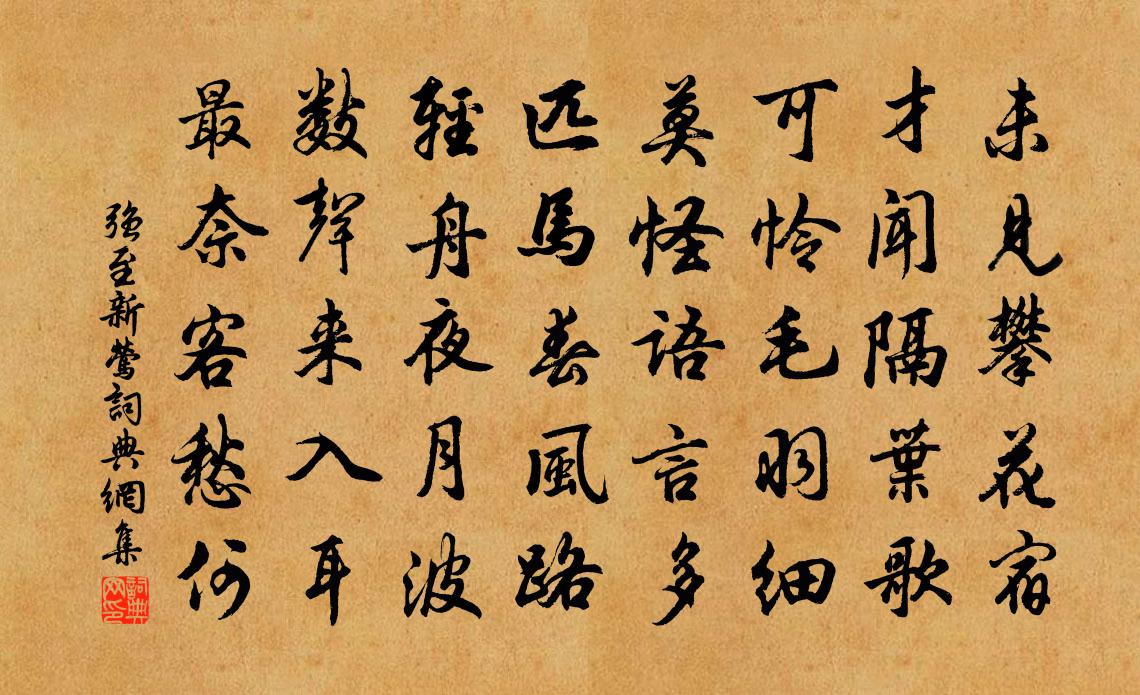 未見攀花宿
才聞隔葉歌
可怜毛羽細
莫怪語言多
匹馬春風路
輕舟夜月波
數聲来入耳
最奈客愁何
強至新鶯詞典網集
詞典网印